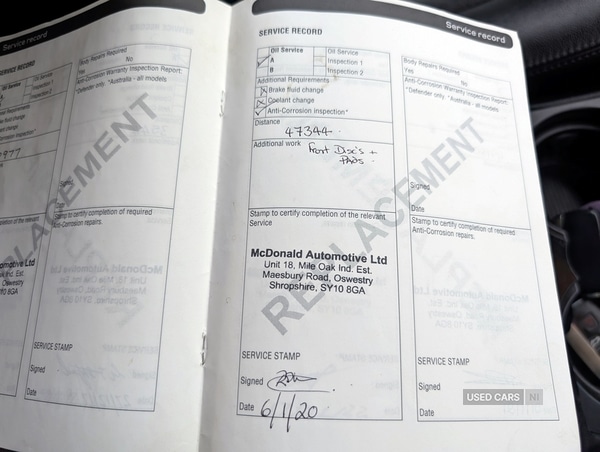 Service record
SERVICE RECORD
Oil Service
A
B
Inspection 1
Inspection 2
Body Repairs Required
Yes No
Anti-Corrosion Warranty Inspection Report:
*Defender only *Australia - all models
977
REPLACEMENT
Stamp to certify completion of required
Anti-Corrosion repairs.
SERVICE STAMP
Signed
Date
Service record
SERVICE RECORD
Oil Service
A
B
Oil Service
Inspection 1
Inspection 2
Additional Requirements
Brake fluid change
Coolant change
Anti-Corrosion inspection*
Distance
47344
Additional work
Front Disc's +
Pads
REPLACEMENT
Stamp to certify completion of the relevant
Service
McDonald Automotive Ltd
Unit 18, Mile Oak Ind. Est.
Maesbury Road, Oswestry
Shropshire, SY10 8GA
SERVICE STAMP
Signed
Date 6/1/20
Body Repairs Required
Yes No
Anti-Corrosion Warranty Inspection Report:
*Defender only *Australia - all models
Signed
Date
Stamp to certify completion of required
Anti-Corrosion repairs.
SERVICE STAMP
Signed
Date
USED CARS NI